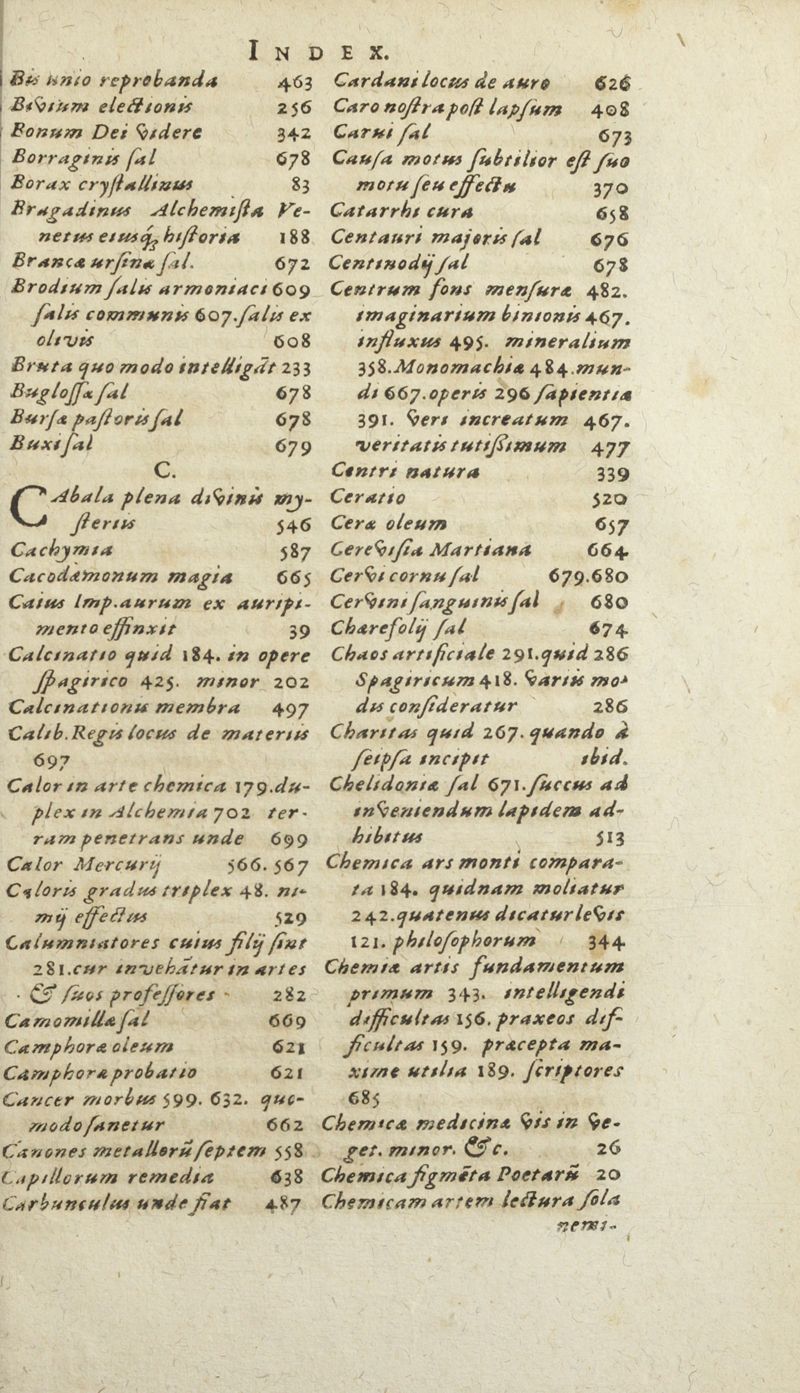 INDEX.
Bis unio reprobanda 463
Bivium electionis 256
Bonum Dei videre 342
Borraginis sal 678
Borax crystallinus 83
Bragadinus Alchemista Ve-
netus eiusq; historia 188
Brancæ ursinæ sal. 672
Brodium salis armoniaci 609
salis communis 607. salis ex
olivis 608
Bruta quo modo intelligāt 233
Buglossæ sal 678
Bursæ pastoris sal 678
Buxi sal 679
C.
CAbala plena divinis my-
steriis 546
Cachymia 587
Cacodæmonum magia 665
Caius Imp. aurum ex auripi-
mento effinxit 39
Calcinatio quid 184. in opere
spagirico 425. minor 202
Calcinationis membra 497
Calib. Regis locus de materiis
697
Calor in arte chemica 179. du-
plex in Alchemia 702 ter-
ram penetrans unde 699
Calor Mercurij 566. 567
Caloris gradus triplex 48. ni-
mij effectus 529
Calumniatores cuius filij sint
281. cur invehātur in artes
& suos professores 282
Camomillæ sal 669
Camphoræ oleum 621
Camphoræ probatio 621
Cancer morbus 599. 632. quo-
modo sanetur 662
Canones metallorū septem 558
Capillorum remedia 638
Carbunculus unde fiat 487
Cardani locus de auro 626
Caro nostra post lapsum 408
Carui sal 673
Causa motus subtilior est suo
motu seu effectu 370
Catarrhi cura 658
Centauri majoris sal 676
Centinodij sal 678
Centrum fons mensuræ 482.
imaginarium binionis 467.
influxus 495. mineralium
358. Monomachiæ 484. mun-
di 667. operis 296 sapientiæ
391. veri increatum 467.
veritatis tutissimum 477
Centri natura 339
Ceratio 520
Ceræ oleum 657
Cerevisia Martiana 664
Cervi cornu sal 679. 680
Cervini sanguinis sal 680
Chærefolij sal 674
Chaos artificiale 291. quid 286
Spagiricum 418. variis mo-
dis consideratur 286
Charitas quid 267. quando à
seipsa incipit ibid.
Chelidoniæ sal 671. succus ad
inveniendum lapidem ad-
hibitus 513
Chemica ars monti compara-
ta 184. quidnam moliatur
242. quatenus dicatur levis
121. philosophorum 344
Chemiæ artis fundamentum
primum 343. intelligendi
difficultas 156. praxeos dif-
ficultas 159. præcepta ma-
xime utilia 189. scriptores
685
Chemicæ medicinæ vis in ve-
get. minor. &c. 26
Chemica figmēta Poetarū 20
Chemicam artem lectura sola
nemi-